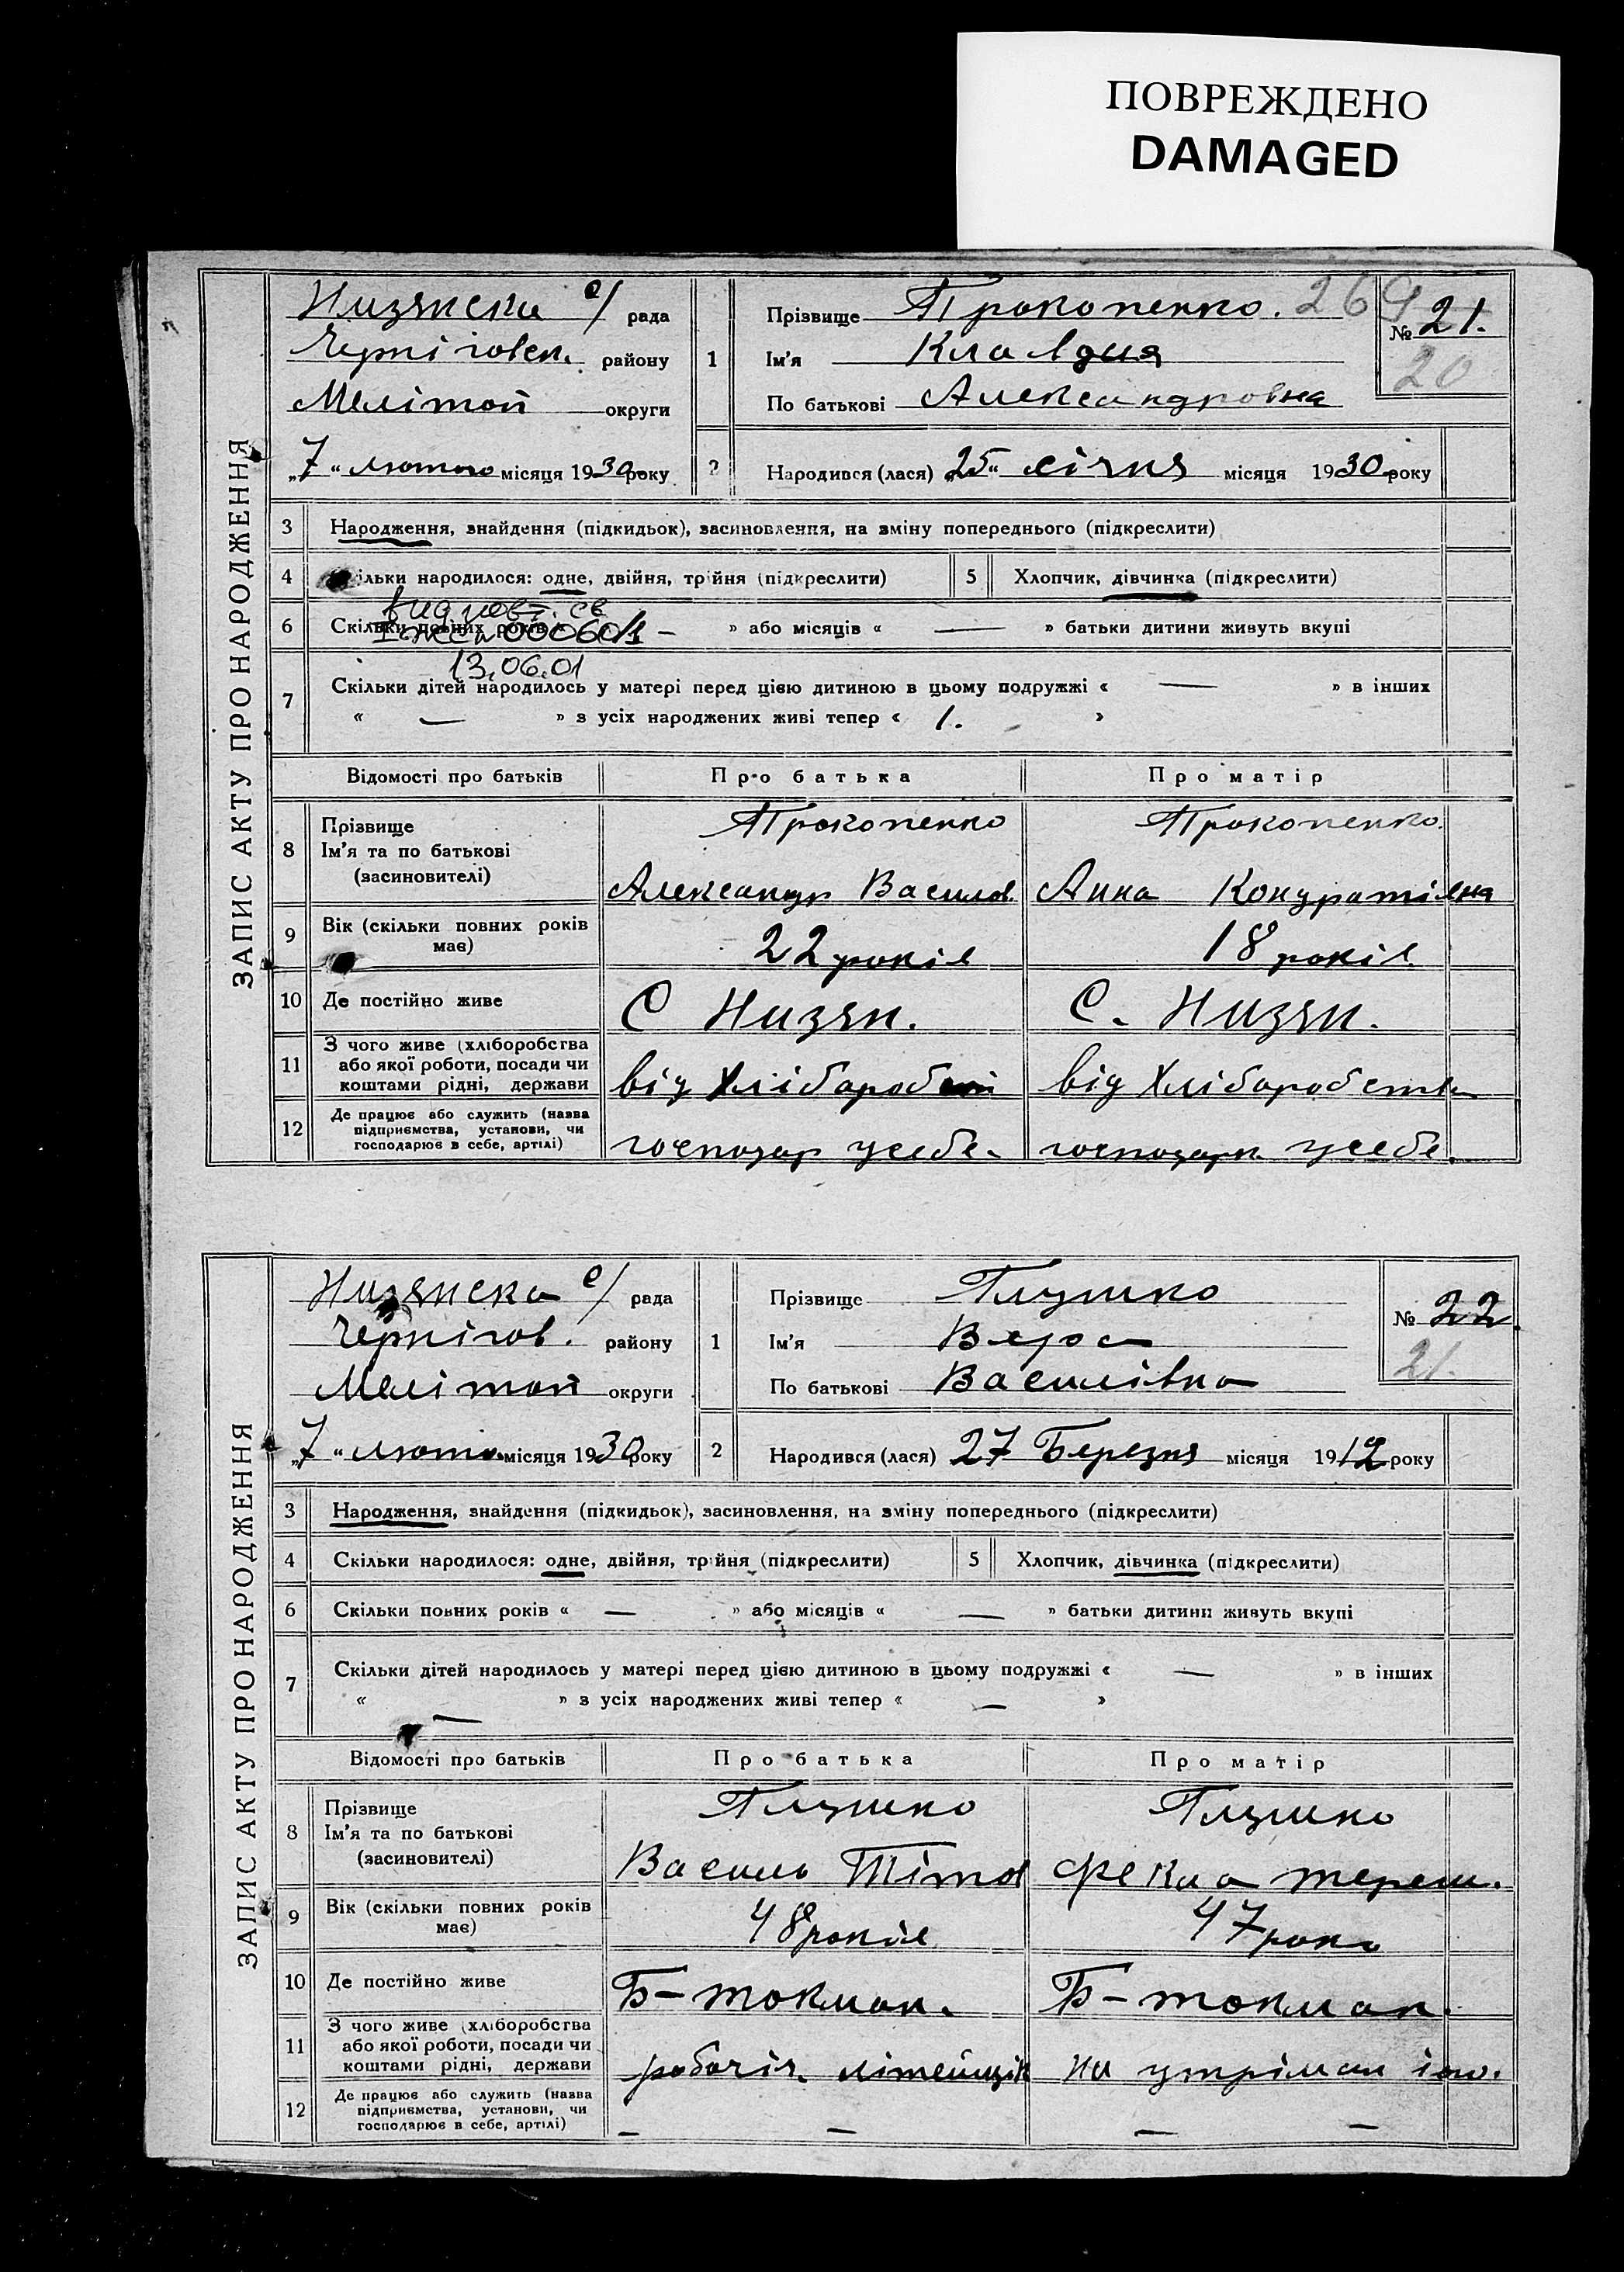 ПОВРЕЖДЕНО
DAMAGED
ЗАПИС АКТУ ПРО НАРОДЖЕННЯ
Низянска с/ рада
Черніговск. району
Мелітоп округи
„7“ лютого місяця 1930 року
1 Прізвище Прокопенко. 269
№ 21.
20
Ім'я Клавдия
По батькові Александровна
2 Народився (лася) „25“ січня місяця 1930 року
3 Народження, знайдення (підкидьок), засиновлення, на зміну попереднього (підкреслити)
4 Скільки народилося: одне, двійня, трійня (підкреслити)
5 Хлопчик, дівчинка (підкреслити)
вид повт. св
6 Скільки повних років « — » або місяців « — » батьки дитини живуть вкупі
000604
13.06.01
7 Скільки дітей народилось у матері перед цією дитиною в цьому подружжі « — » в інших
« — » з усіх народжених живі тепер « 1. »
Відомості про батьків Про батька Про матір
8 Прізвище Прокопенко Прокопенко.
Ім'я та по батькові
(засиновителі) Александр Васильов. Анна Кондратівна
9 Вік (скільки повних років має) 22 років 18 років.
10 Де постійно живе С Низян. С. Низян.
11 З чого живе (хліборобства
або якої роботи, посади чи
коштами рідні, держави від Хліборобст від Хліборобства
12 Де працює або служить (назва
підприємства, установи, чи
господарює в себе, артілі) господар усебе. господарк усебе.
ЗАПИС АКТУ ПРО НАРОДЖЕННЯ
Низянска с/ рада
Чернігов. району
Мелітоп округи
„7“ лютого місяця 1930 року
1 Прізвище Глушко
№ 22.
21.
Ім'я Вера
По батькові Василівна
2 Народився (лася) 27 Березня місяця 1912 року
3 Народження, знайдення (підкидьок), засиновлення, на зміну попереднього (підкреслити)
4 Скільки народилося: одне, двійня, трійня (підкреслити)
5 Хлопчик, дівчинка (підкреслити)
6 Скільки повних років « — » або місяців « — » батьки дитини живуть вкупі
7 Скільки дітей народилось у матері перед цією дитиною в цьому подружжі « — » в інших
« — » з усіх народжених живі тепер « — »
Відомості про батьків Про батька Про матір
8 Прізвище Глушко Глушко
Ім'я та по батькові
(засиновителі) Василь Тітов Фекла тереш.
9 Вік (скільки повних років має) 48 років 47 рокі
10 Де постійно живе Б-токмак. Б-токмак.
11 З чого живе (хліборобства
або якої роботи, посади чи
коштами рідні, держави робочій літейщік на утріман
12 Де працює або служить (назва
підприємства, установи, чи
господарює в себе, артілі) — — — —